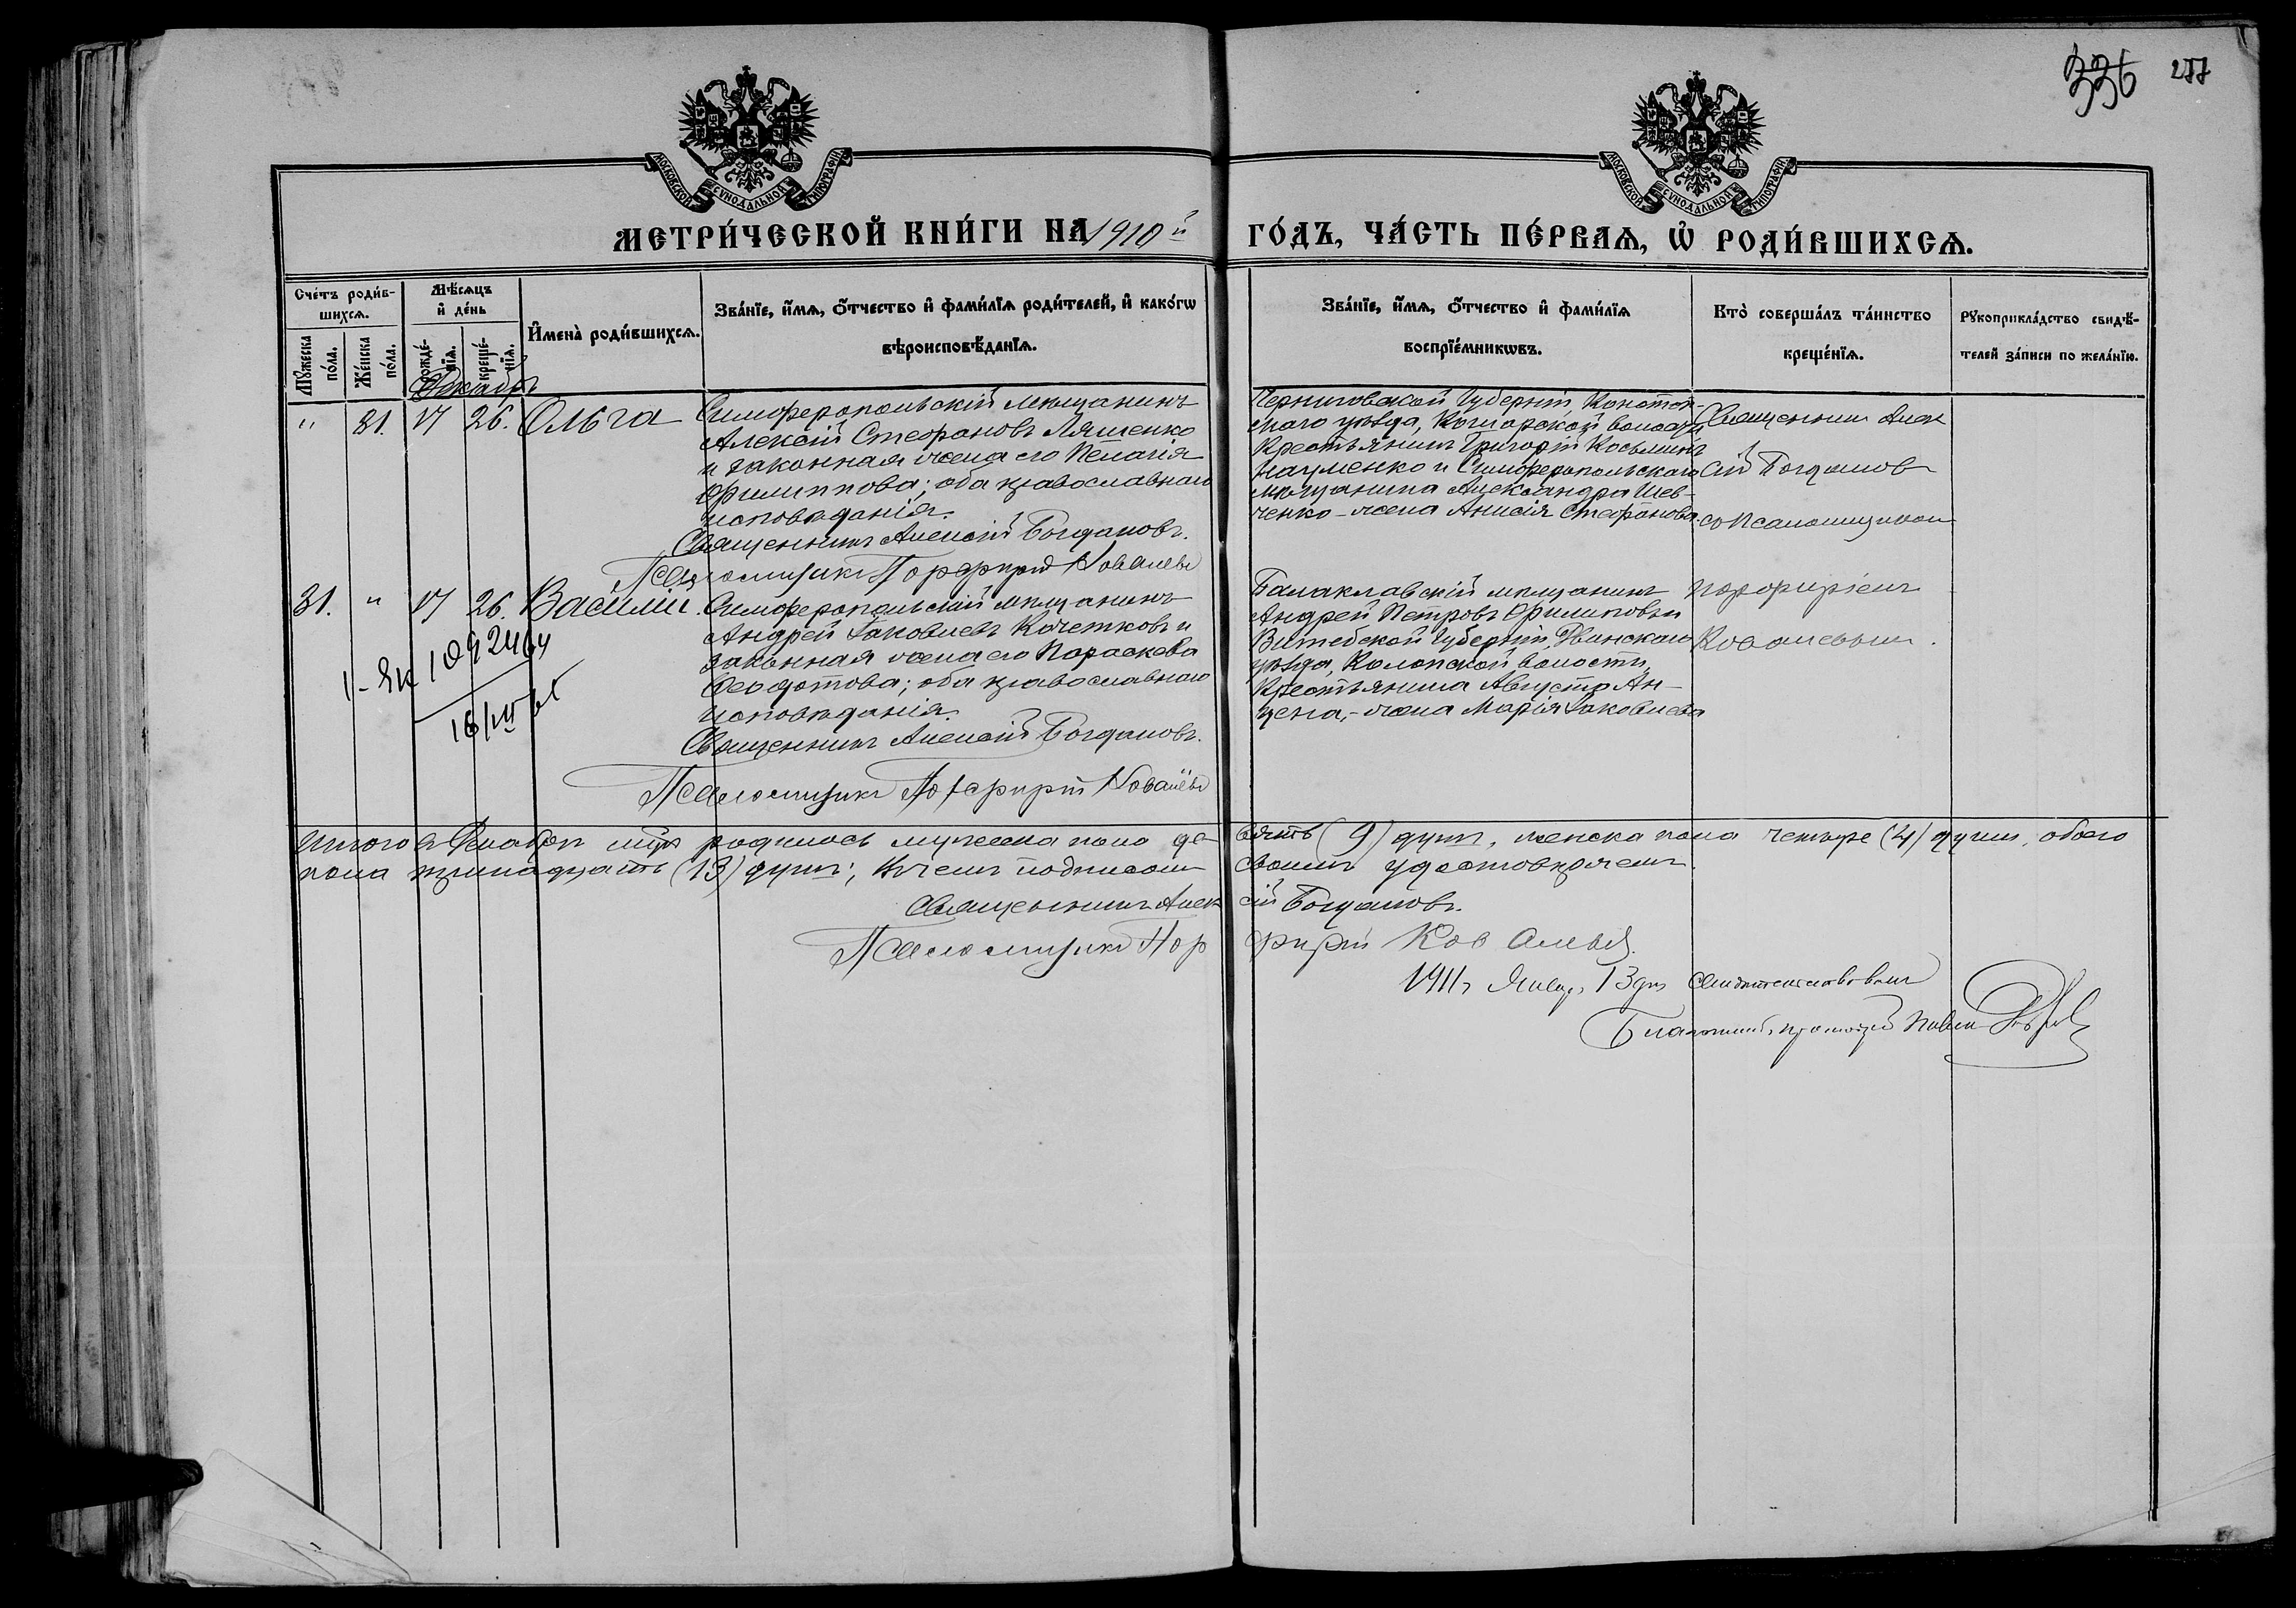 336 277
МОСКОВСКОЙ СѴНОДАЛЬНОЙ ТИПОГРАФІИ
МОСКОВСКОЙ СѴНОДАЛЬНОЙ ТИПОГРАФІИ
МЕТРИ́ЧЕСКОЙ КНИ́ГИ НА 1910й ГО́ДЪ, ЧА́СТЬ ПЕ́РВАѦ, Ѡ҆ РОДИ́ВШИХСѦ.
Сче́тъ роди́в-
шихсѧ.
Мꙋ́жеска по́ла.
Же́нска по́ла.
Мѣ́сѧцъ
и҆ де́нь
рожде́-нїѧ.
креще́-нїѧ.
И҆мена̀ роди́вшихсѧ.
Зва́нїе, и҆́мѧ, ѻ҆́тчество и҆ фами́лїѧ роди́телей, и҆ како́гѡ
вѣроисповѣ́данїѧ.
Зва́нїе, и҆́мѧ, ѻ҆́тчество и҆ фами́лїѧ
воспрїе́мникѡвъ.
Кто̀ соверша́лъ та́инство
креще́нїѧ.
Рꙋкоприкла́дство свидѣ́-
телей за́писи по жела́нїю.
Декабрь
" 31. 17 26. Ольга
Симферопольскій мѣщанинъ
Алексій Стефановъ Ляшенко
и законная жена его Пелагія
Филиппова; оба православнаго
исповѣданія.
Священникъ Алексій Богдановъ.
Псаломщикъ Порфирій Ковалевъ
Черниговской Губерніи, Конотоп-
скаго уѣзда, волости
Крестьянинъ Григорій Косьминъ
Науменко и Симферопольскаго
мѣщанина Александра Шев-
ченко - жена Анисія Стефанова.
Священникъ Алек
сій Богдановъ
съ Псаломщикомъ
Порфиріемъ
Ковалевымъ.
31. " 17 26. Василій.
Симферопольскій мѣщанинъ
Андрей Іаковлевъ Кочетковъ и
законная жена его Параскева
Феодотова; оба православнаго
исповѣданія.
Священникъ Алексій Богдановъ.
Псаломщикъ Порфирій Ковалёвъ
Балаклавскій мѣщанинъ
Андрей Петровъ Филиповъ и
Витебской Губерніи, Двинскаго
уѣзда, волости,
Крестьянина Августа Ан-
цена, - жена Марія Іаковлева
Итого въ Декабрѣ мцѣ родилось мужеска пола де-вять (9) душъ, женска пола четыре (4) души, обоего
пола тринадцать (13) душъ; въ чемъ подписомъ своимъ удостовѣряемъ.
Священникъ Алексій Богдановъ.
Псаломщикъ Порфирій Ковалевъ.
1911 г. Январ. 13 дня свидѣтельствовалъ
Благочинный, протоіерей Павелъ